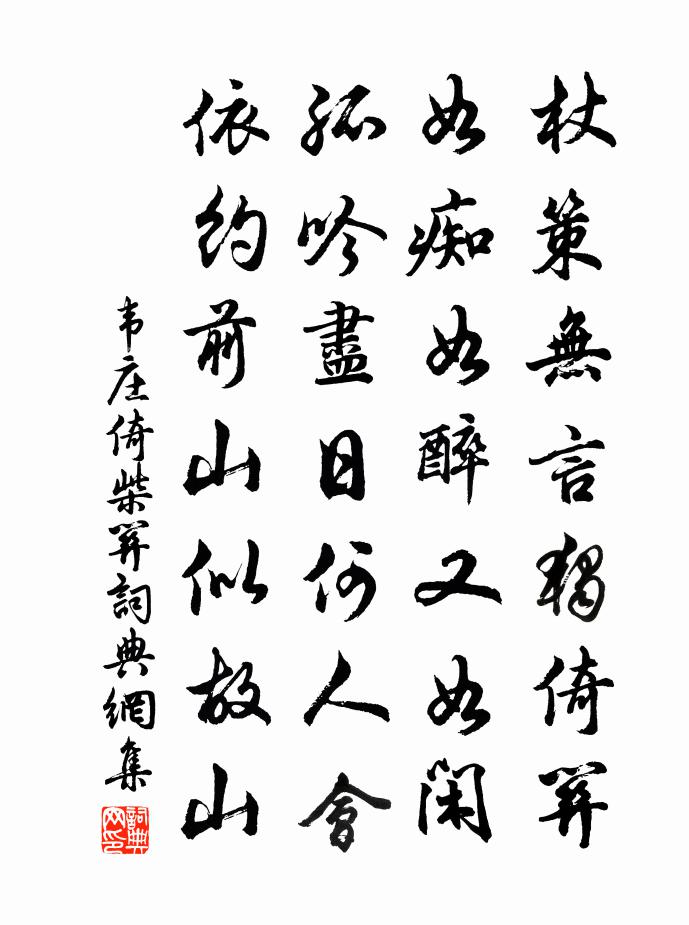 杖策無言獨倚關
如痴如醉又如閑
孤吟盡日何人會
依約前山似故山
韦庄倚柴關詞典網集
詞典网印